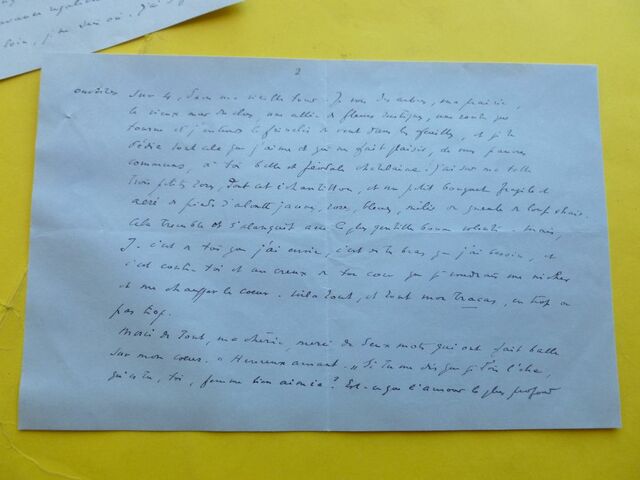 2
ouvertes sur 4, dans ma vieille tour. Je vois des arbres, ma prairie,
le vieux mur du clos, une allée de fleurs rustiques, une route qui
tourne et j'entends le friselis du vent dans les feuilles, et je te
dédie tout cela que j'aime et qui me fait plaisir, de mes pauvres
communs, à toi belle et féodale châtelaine. J'ai sur ma table
trois petits zoos, dont cet échantillon, et un petit bouquet fragile et
aéré de pieds d'alouette jaunes, rose, bleus, mêlés de gueule de loup
Cela tremble et s'alanguit avec la plus gentille bonne volonté. Mais,
J. c'est de toi que j'ai envie, c'est de tes bras que j'ai besoin, et
c'est contre toi et au creux de ton cou que je voudrais me nicher
et me chauffer le coeur. Voilà tout, et tout mon tracas, en trop ou
pas trop.
Merci de tout, ma chérie, merci de deux mots qui ont fait balle
sur mon coeur. « Heureux amant. » Si tu me dis que je dois l'être,
qui es tu, toi, femme bien aimée ? Est-ce que l'amour le plus profond